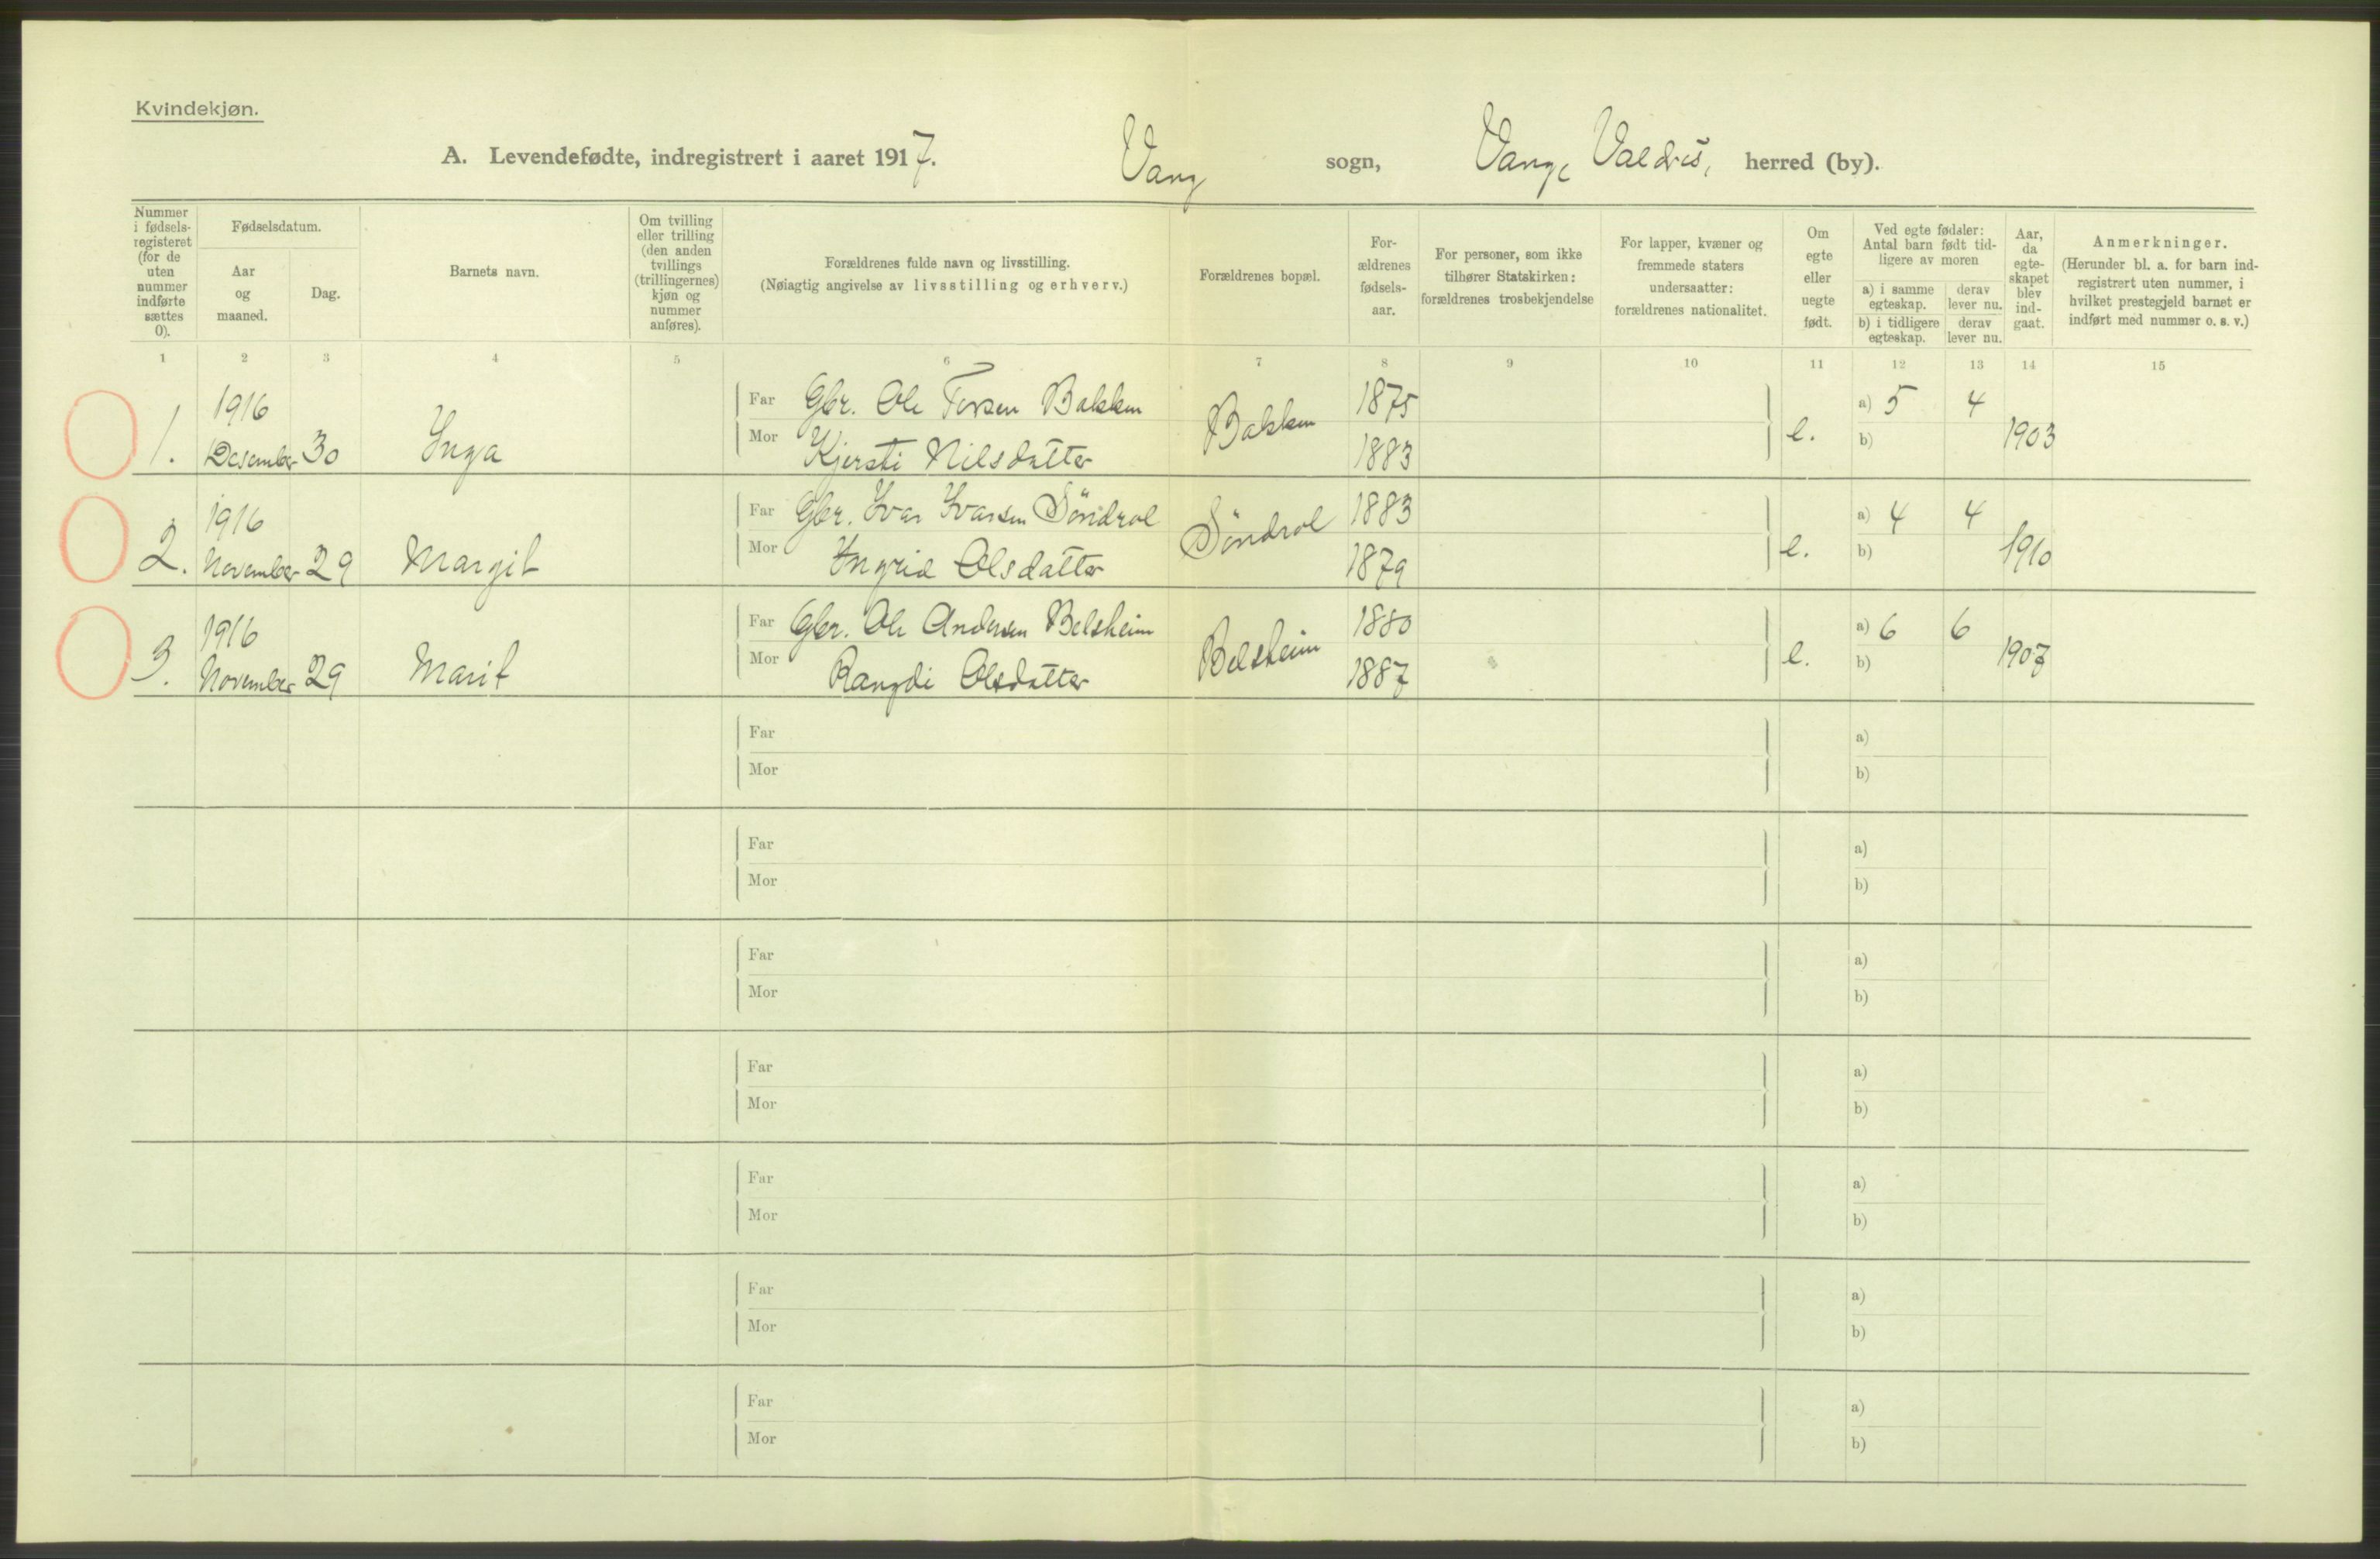 Kvindekjøn.
A. Levendefødte, indregistrert i aaret 1917. Vang sogn, Vang, Valdres, herred (by).
Nummer i fødsels-registeret (for de uten nummer indførte sættes 0).
Fødselsdatum.
Aar og maaned.
Dag.
Barnets navn.
Om tvilling eller trilling (den anden tvillings (trillingernes) kjøn og nummer anføres).
Forældrenes fulde navn og livsstilling.
(Nøiagtig angivelse av livsstilling og erhverv.)
Forældrenes bopæl.
For-ældrenes fødsels-aar.
For personer, som ikke tilhører Statskirken: forældrenes trosbekjendelse
For lapper, kvæner og fremmede staters undersaatter: forældrenes nationalitet.
Om egte eller uegte født.
Ved egte fødsler: Antal barn født tid-ligere av moren
a) i samme egteskap. derav lever nu.
b) i tidligere egteskap. derav lever nu.
Aar, da egte-skapet blev ind-gaat.
Anmerkninger.
(Herunder bl. a. for barn ind-registrert uten nummer, i hvilket prestegjeld barnet er indført med nummer o. s. v.)
1 2 3 4 5 6 7 8 9 10 11 12 13 14 15
1. 1916 Desember 30 Inga
Far Gbr. Ole Bakken Bakken 1875 e. a) 5 4 1903
Mor Kjersti Nilsdatter 1883 b)
2. 1916 November 29 Margit
Far Gbr. Ivar Ivarsen Søndrol Søndrol 1883 e. a) 4 4 1910
Mor Ingrid Olsdatter 1879 b)
3. 1916 November 29 Marit
Far Gbr. Ole Andersen Belsheim Belsheim 1880 e. a) 6 6 1907
Mor Rangdi Olsdatter 1887 b)
Far a)
Mor b)
Far a)
Mor b)
Far a)
Mor b)
Far a)
Mor b)
Far a)
Mor b)
Far a)
Mor b)
Far a)
Mor b)